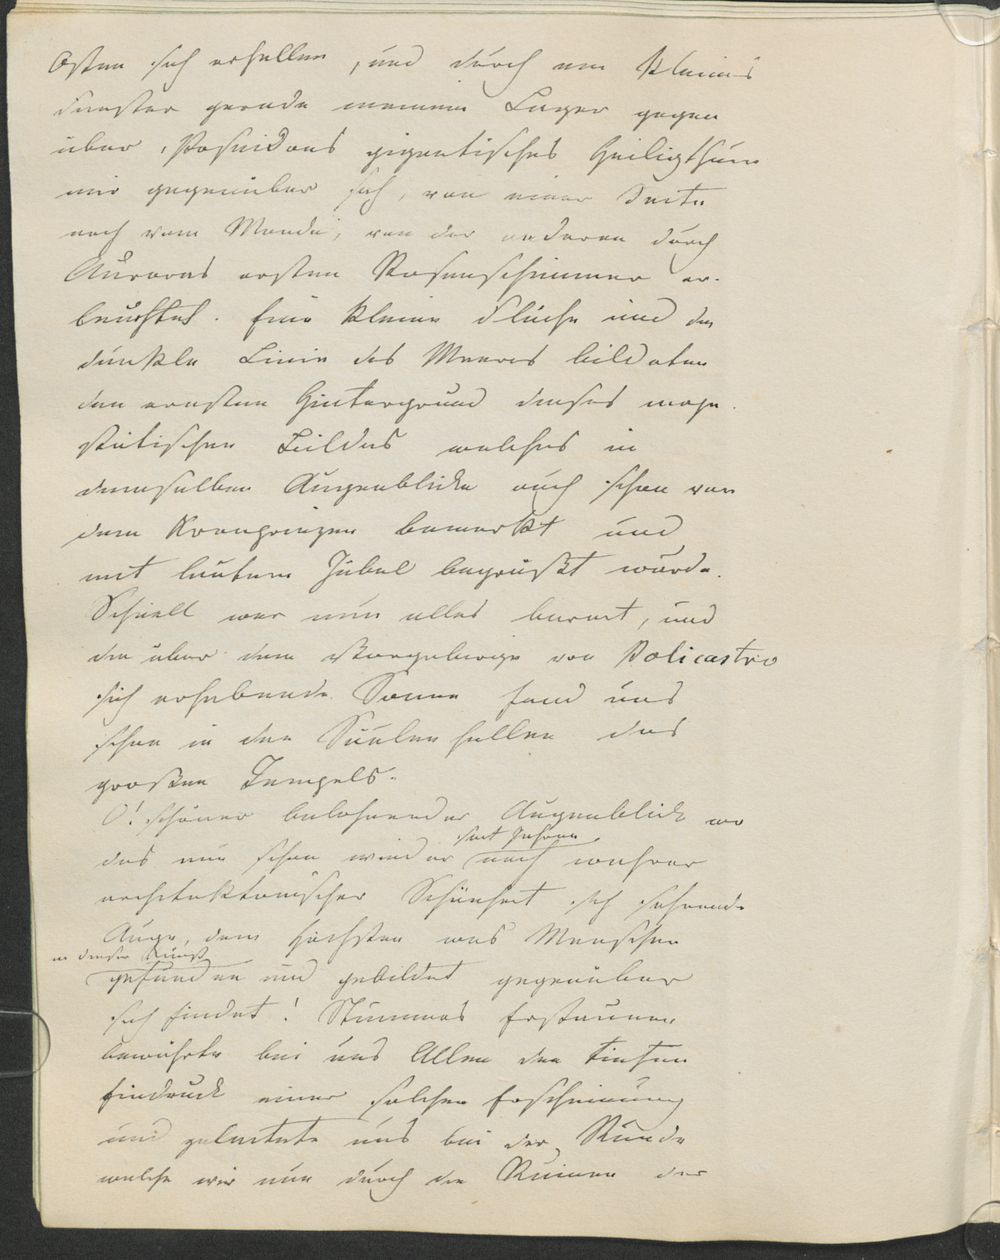 Osten sich erhellen, und durch ein kleines
Fenster gerade meinem Lager gegen
über, Poseidons gigantisches Heiligthum
mir gegenüber sah, von einer Seite
noch vom Monde, von der anderen durch
Auroras ersten Rosenschimmer er-
leuchtet. Eine kleine Fläche und die
dunkle Linie des Meeres bildeten
den ernsten Hintergrund dieses maje-
stätischen Bildes welches in
demselben Augenblicke auch schon von
dem Kronprinzen bemerkt und
mit lautem Jubel begrüßt wurde.
Schnell war nun alles bereit, und
die über dem Vorgebirge von Policastro
sich erhebende Sonne fand uns
schon in den Säulenhallen des
großen Tempels.
O! schöner belohnender Augenblick wo
seit Jahren
das nun schon wieder nach wahrer
architektonischer Schönheit sich sehnende
Auge, dem Höchsten was Menschen
in dieser Kunst
gefunden und gebildet gegenüber
sich findet! Stummes Erstaunen
bewährte bei uns Allen den tiefen
Eindruck einer solchen Erscheinung
und geleitete uns bei der Runde
welche wir nun durch die Ruinen der